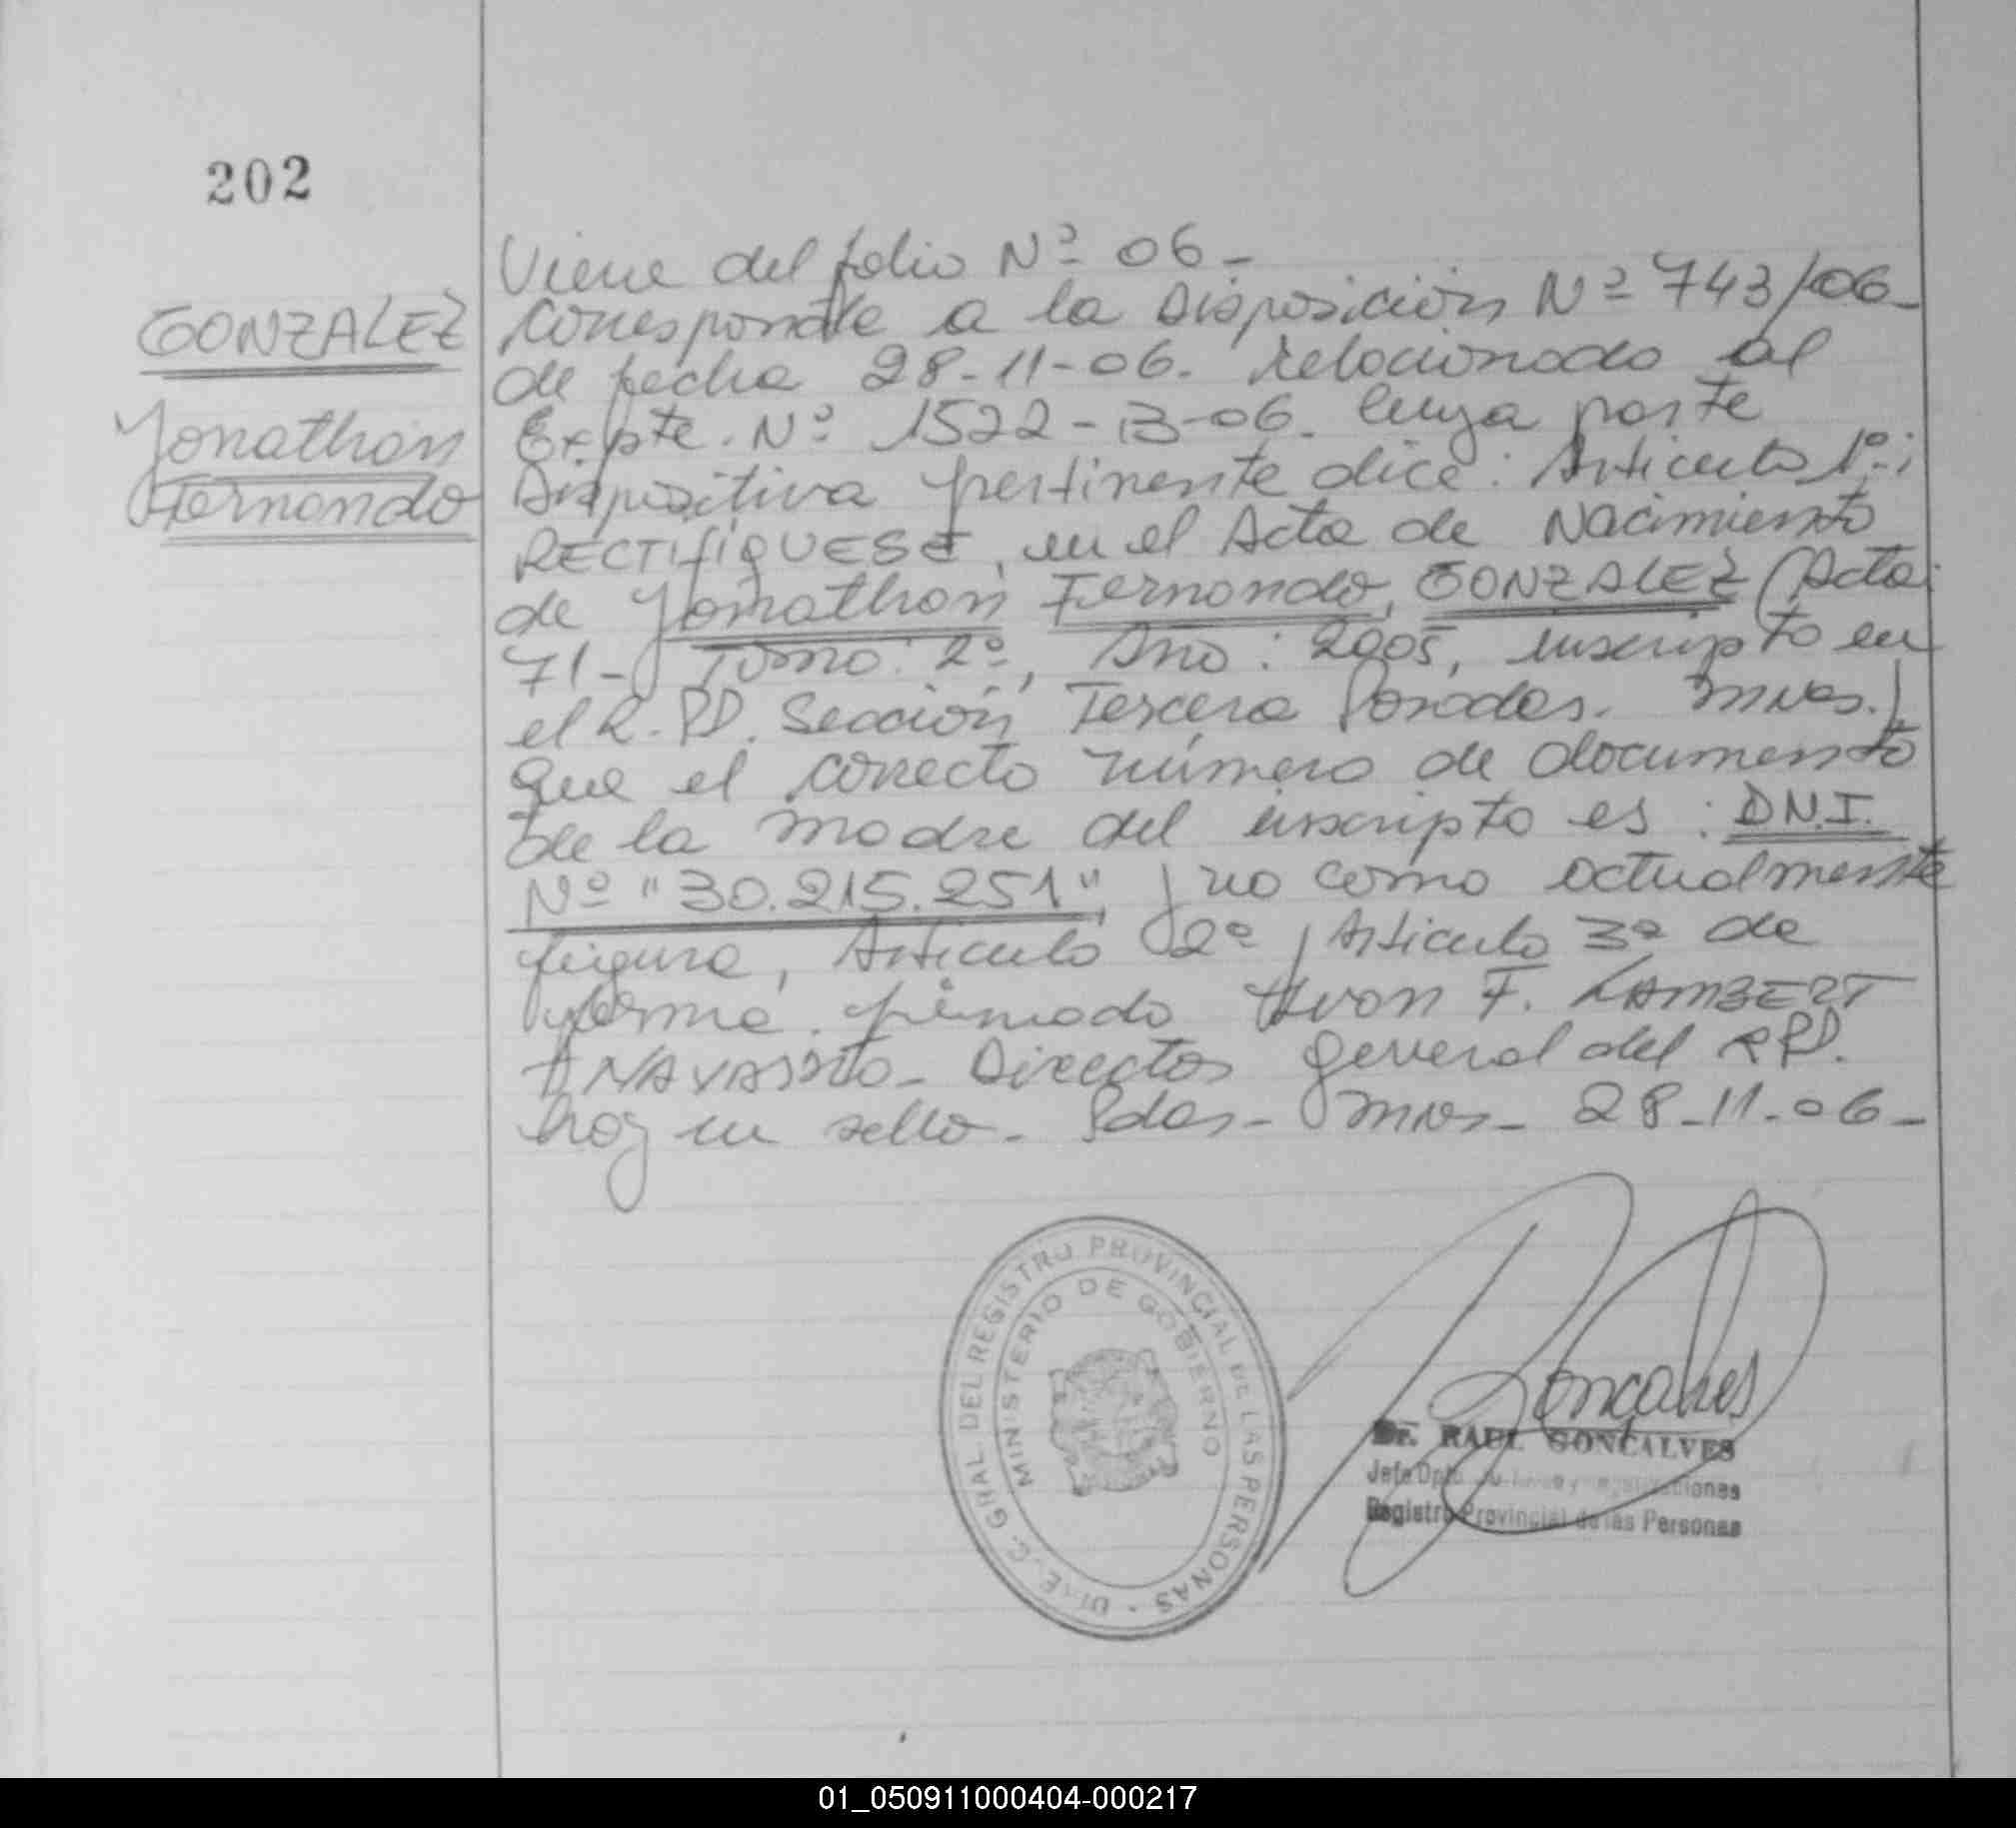 202
GONZALEZ
Yonathan
Fernando
Viene del folio Nº 06-
corresponde a la Disposición Nº 743/06-
de fecha 28-11-06. relacionado al
Expte. Nº 1522-B-06. cuya parte
Dispositiva pertinente dice: Articulo 1º:
RECTIFÍQUESE, en el Acta de Nacimiento
de Yonathan Fernando, GONZALEZ (Acta:
71- Tomo: 2º, Año: 2005, inscripto en
el R.P.P. Sección Tercera Posadas. Mnes.)
que el correcto número de documento
de la madre del inscripto es: D.N.I.
Nº "30.215.251", y no como actualmente
figura, Articulo 2º y Articulo 3º de
forma. firmado Hvon F. LAMBERT
Director general del R.P.P.
hay un sello. Pdas- Mnes- 28-11-06-
DIREC. GRAL. DEL REGISTRO PROVINCIAL DE LAS PERSONAS
MINISTERIO DE GOBIERNO
Gonçalves
Dr. RAUL GONÇALVES
Jefe Dpto.
Registro Provincial de las Personas
01_050911000404-000217